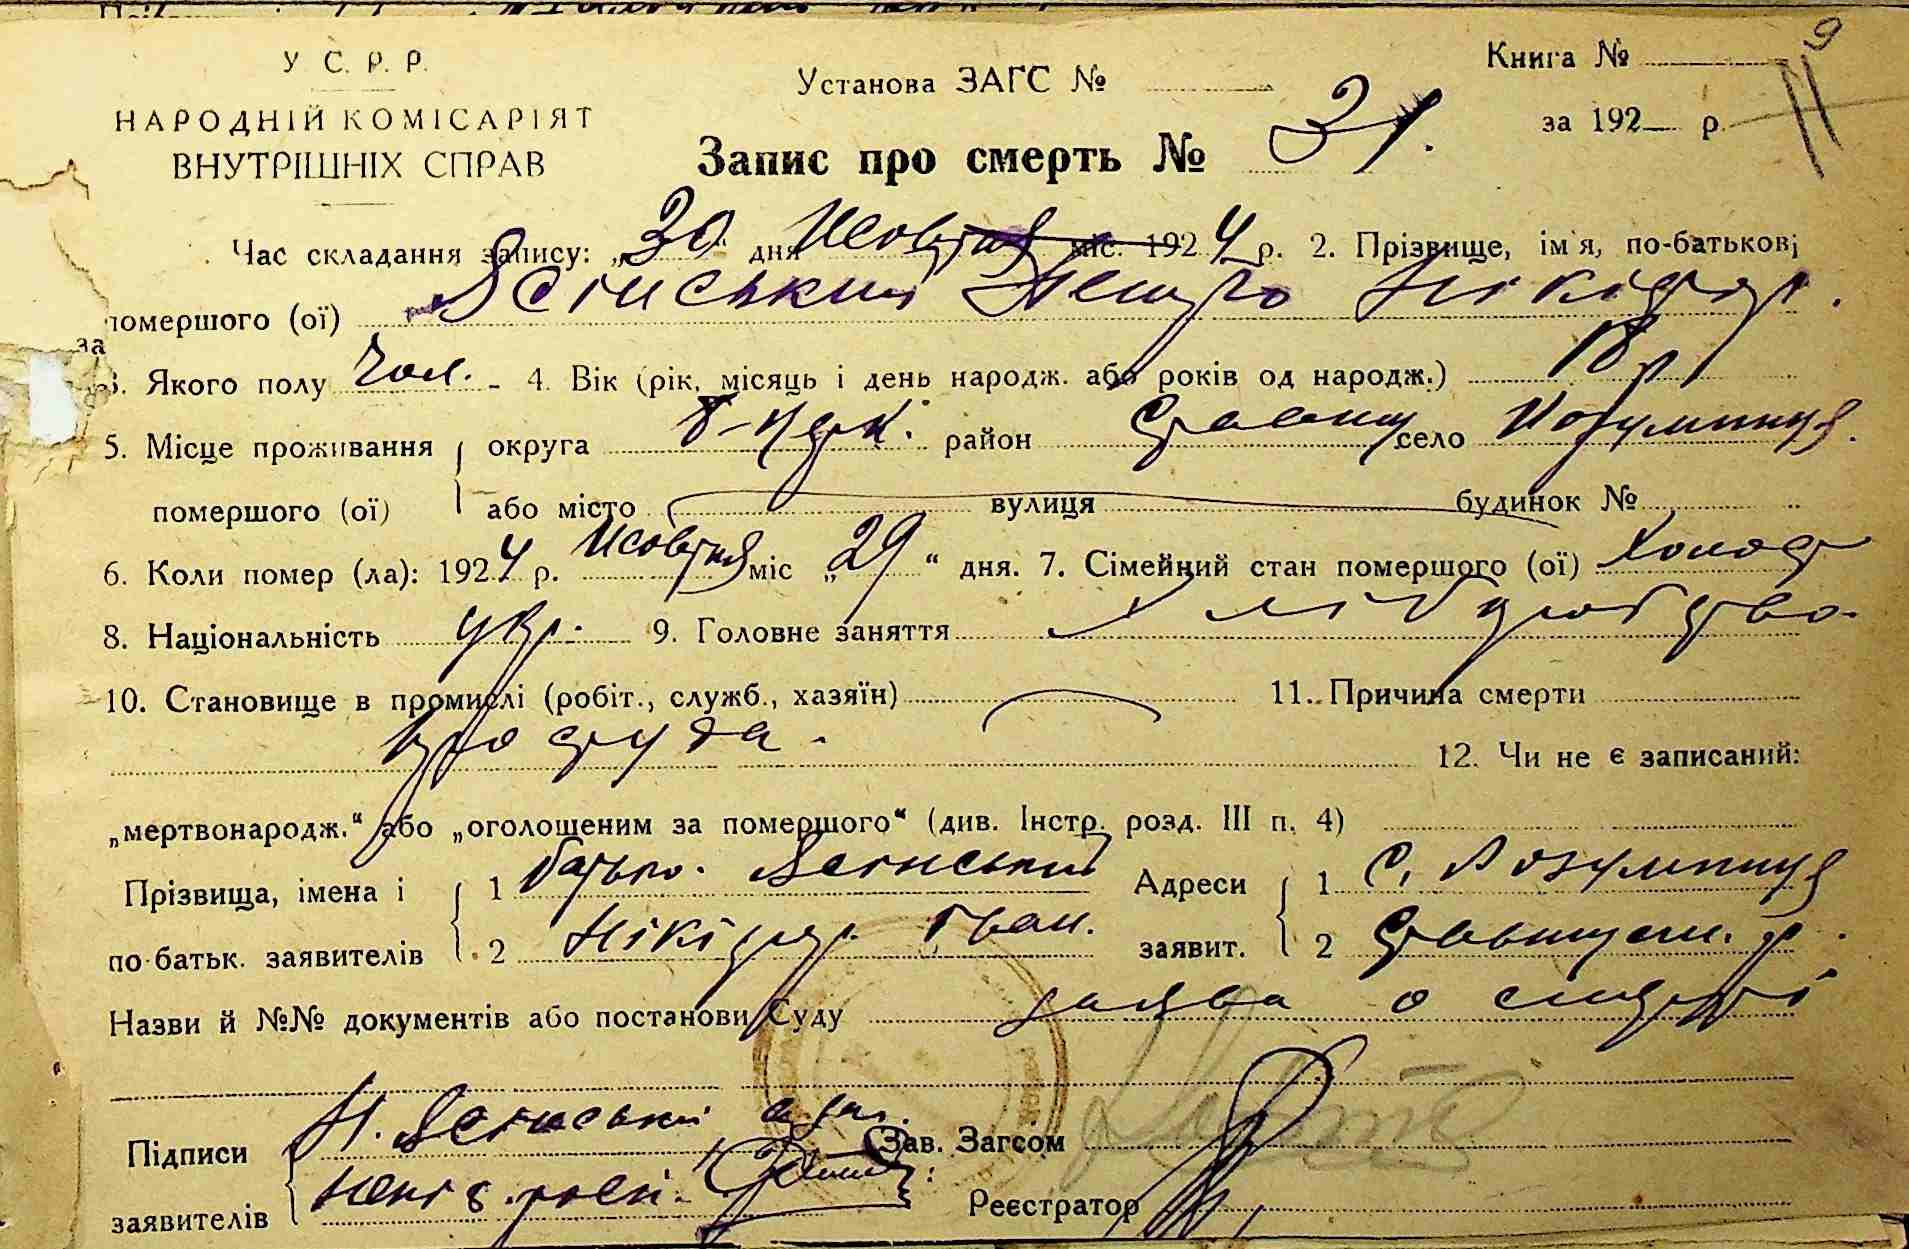 У С. Р. Р.
НАРОДНІЙ КОМІСАРІЯТ
ВНУТРІШНІХ СПРАВ
Установа ЗАГС №
Книга №
9
за 192 р.
11
Запис про смерть № 31.
Час складання запису: „30“ дня Жовтня міс. 1924 р. 2. Прізвище, ім'я, по-батькові
помершого (ої) Петро Нікіфор.
за
3. Якого полу Чол. - 4. Вік (рік, місяць і день народж. або років од народж.) 18 р
5. Місце проживання округа Б-Церк. район Ставищ село Розумниця.
помершого (ої) або місто вулиця будинок №
6. Коли помер (ла): 1924 р. Жовтня міс „29“ дня. 7. Сімейний стан помершого (ої) Холост
8. Національність укр. 9. Головне заняття Хліборобство.
10. Становище в промислі (робіт., служб., хазяїн) 11. Причина смерти
простуда.
12. Чи не є записаний:
„мертвонародж.“ або „оголошеним за помершого“ (див. Інстр. розд. III п. 4)
Прізвища, імена і 1 батько. Адреси 1 С. Розумниця
по-батьк. заявителів 2 Нікіфор Іван. заявит. 2 Ставищан. р.
Назви й №№ документів або постанови Суду заява о смерті
Підписи Н. Зав. Загсом
заявителів Реєстратор